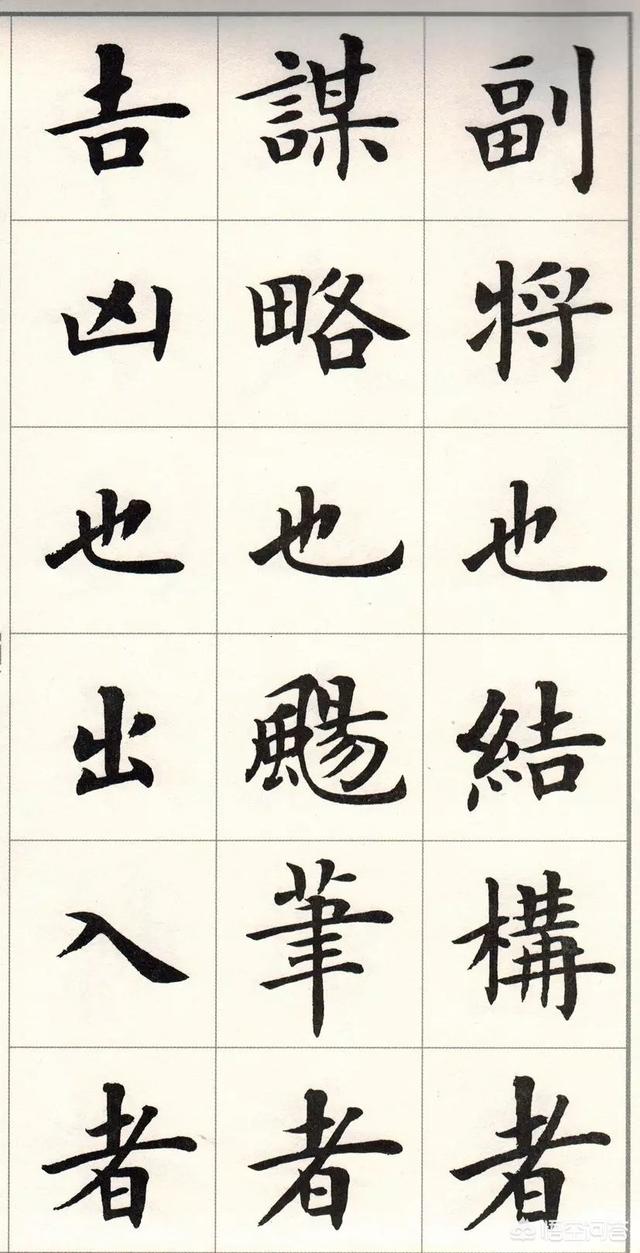 副将也結構者
謀略也颺筆者
吉凶也出入者
悟空问答